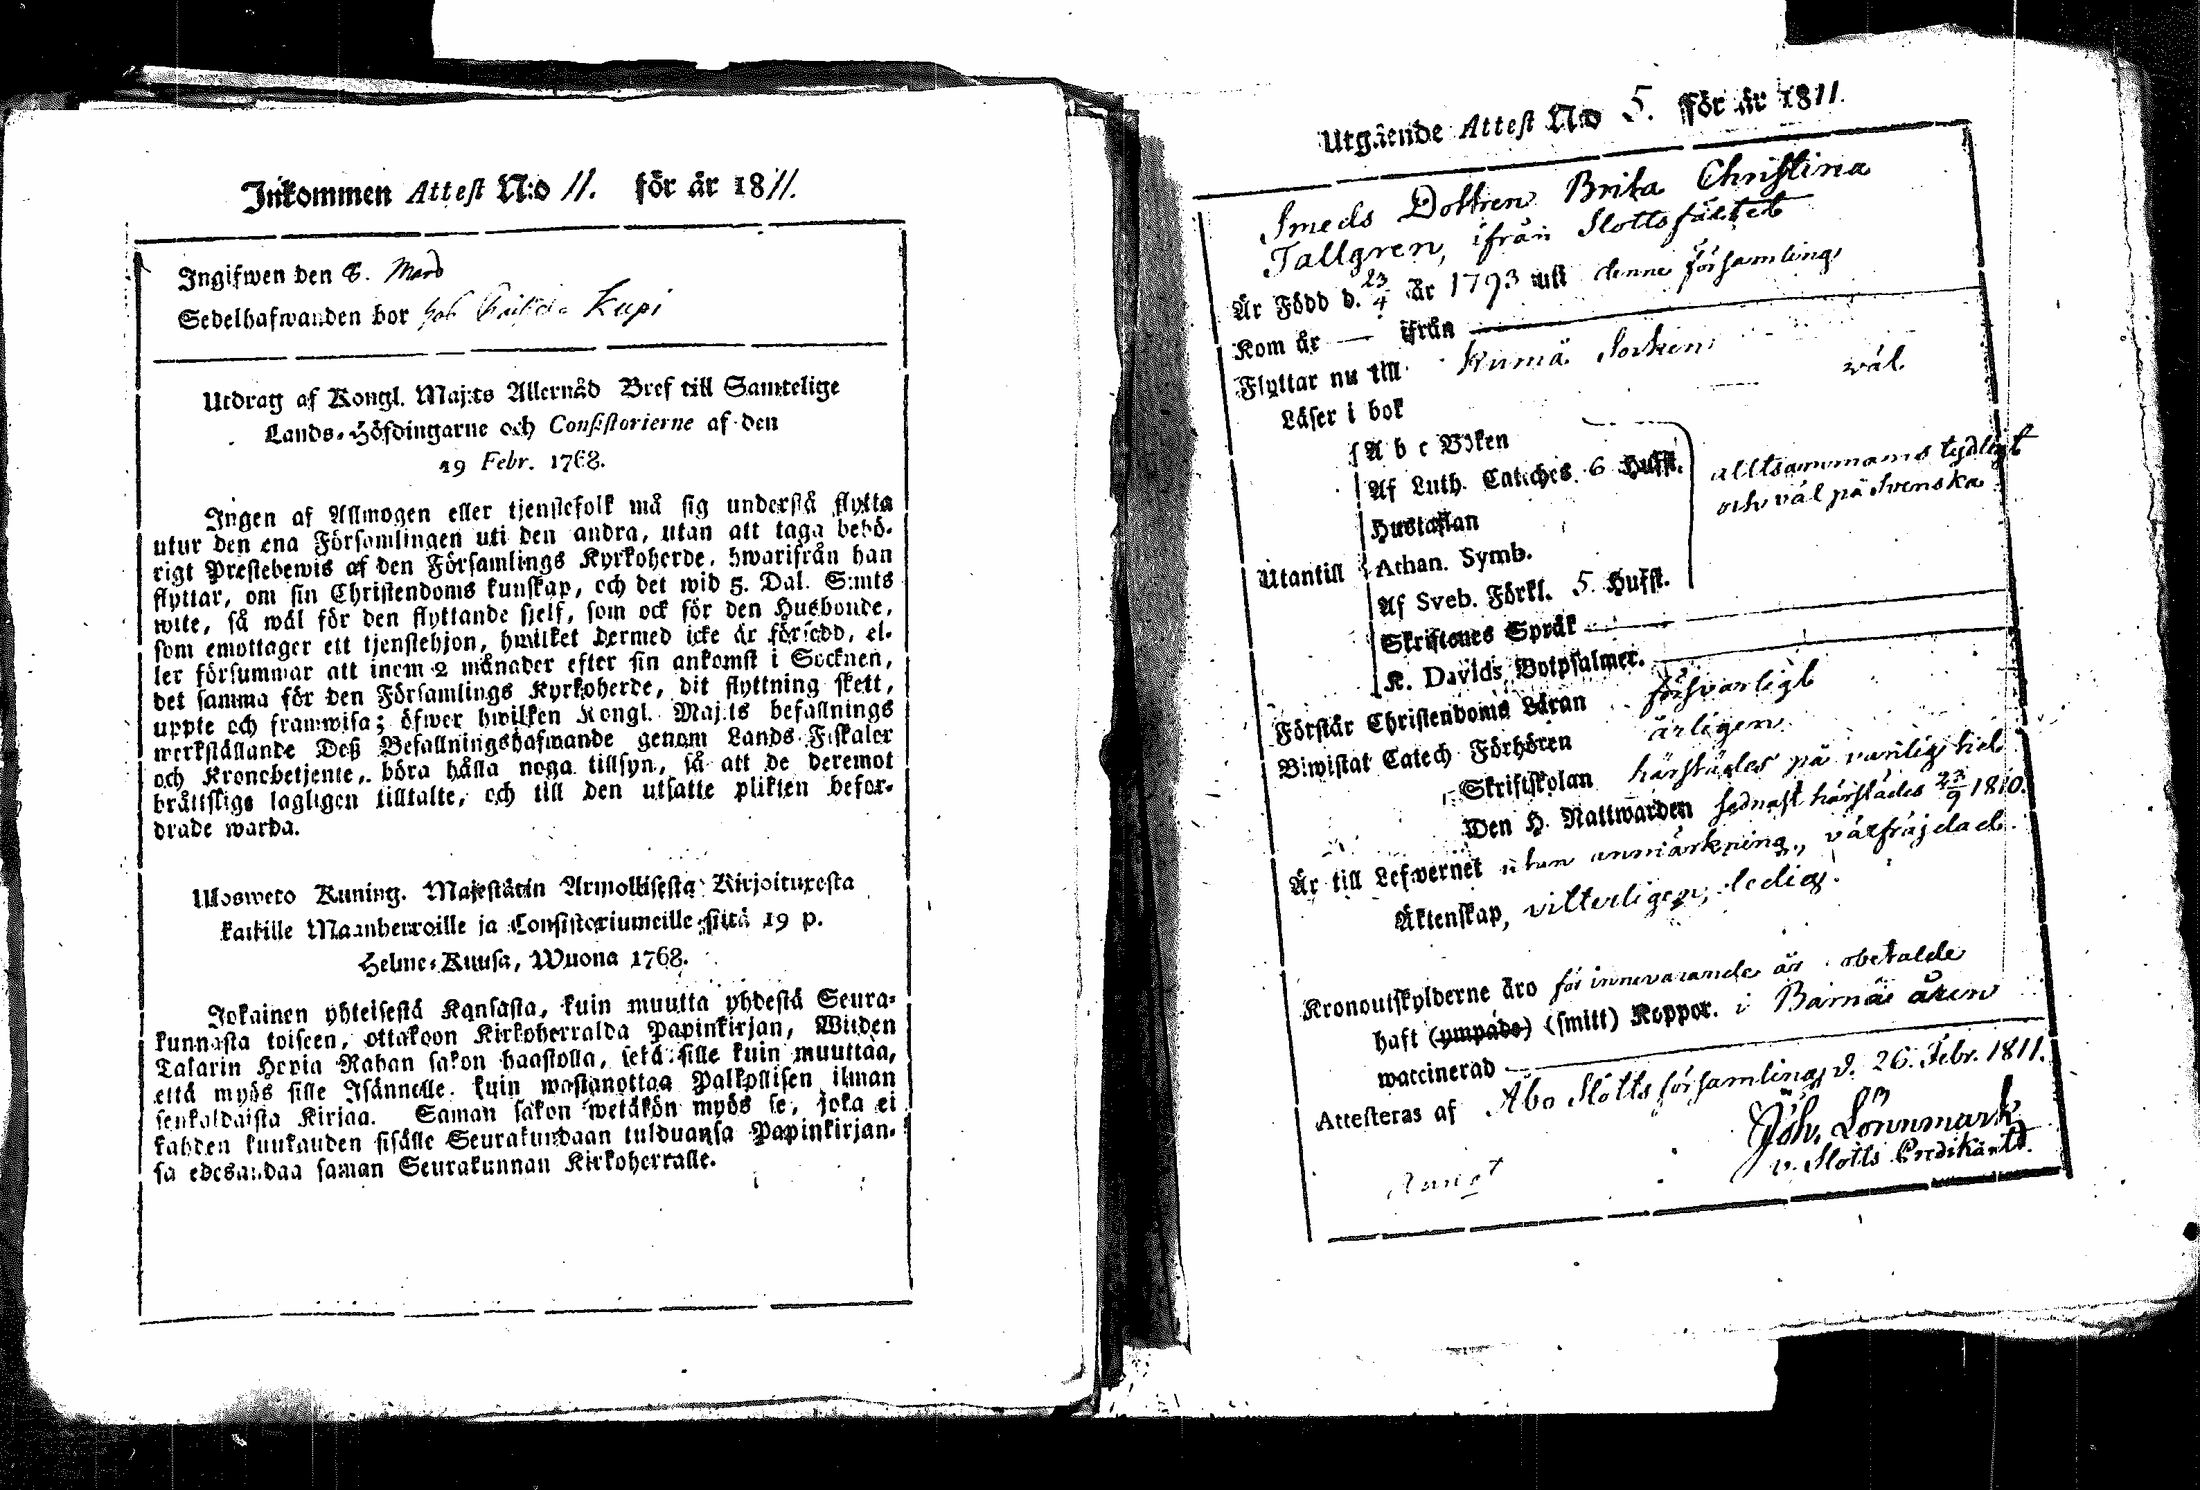 Inkommen Attest N:o 11. för år 1811.
Ingifwen den 8. Mars
Sedelhafwanden bor hos Kupi
Utdrag af Kongl. Maj:ts Allernåd Bref till Samtelige
Lands-Höfdingarne och Consistorierne af den
19 Febr. 1768.
Ingen af Allmogen eller tjenstefolk må sig understå flytta
utur den ena Församlingen uti den andra, utan att taga behö-
rigt Prestebewis af den Församlings Kyrkoherde, hwarifrån han
flyttar, om sin Christendoms kunskap, och det wid 5. Dal. S:mts
wite, så wäl för den flyttande sjelf, som ock för den Husbonde,
som emottager ett tjenstehjon, hwilket dermed icke är försedd, el-
ler försummar att inem 2 månader efter sin ankomst i Socknen,
det samma för den Församlings Kyrkoherde, dit flyttning skett,
uppte och framwisa; öfwer hwilken Kongl. Maj:ts befallnings
werkställande Deß Befallningshafwande genom Lands-Fiskaler
och Kronobetjente, böra hålla noga tillsyn, så att de deremot
bråttslige lagligen tilltalte, och till den utsatte plikten befor-
drade warda.
Ulosweto Kuning. Majestätin Armollisesta Kirjoituxesta
kaikille Maanherroille ja Consistoriumeille siitä 19 p.
Helme-Kuusa, Wuona 1768.
Jokainen yhteisestä Kansasta, kuin muutta yhdestä Seura-
kunnasta toiseen, ottakoon Kirkoherralda Papinkirjan, Wiiden
Talarin Hopia Rahan sakon haastolla, sekä sille kuin muuttaa,
että myös sille Isännelle, kuin wastanottaa Palkollisen ilman
senkaldaista Kirjaa. Saman sakon wetäkön myös se, joka ei
kahden kuukauden sisälle Seurakundaan tulduansa Papinkirjan-
sa edesandaa saman Seurakunnan Kirkoherralle.
Utgående Attest N:o 5. för år 1811.
Smeds Dottren Brita Christina
Tallgren, ifrån Slottsfältet
Är Född d. 23/4 år 1793 uti denne församling
Kom år — ifrån —
Flyttar nu till Kumå Socken
Läser i bok väl
A b c Boken
Af Luth. Cateches. 6 Hufst. alltsammans tydligt
och väl på Svenska
Hustaflan
Utantill Athan. Symb.
Af Sveb. Förkl. 5 Hufst.
Skriftenes Språk —
K. Davids Botpsalmer. —
Förstår Christendoms Läran försvarligt
Biwistat Catech Förhören årligen
Skriftskolan härstädes på vanlig tid
Den H. Nattwarden sednast härstädes 23/9 1810.
Är till Lefwernet utan anmärkning, välfräjdad.
Äktenskap, vitterligen, ledig.
Kronoutskylderne äro för innevarande år obetalde
haft (ympade) (smitt) Koppor. i Barnaåren
waccinerad —
Attesteras af Åbo Slottsförsamling, d. 26. Febr. 1811.
Joh. Lönnmark
v. Slotts Predikant